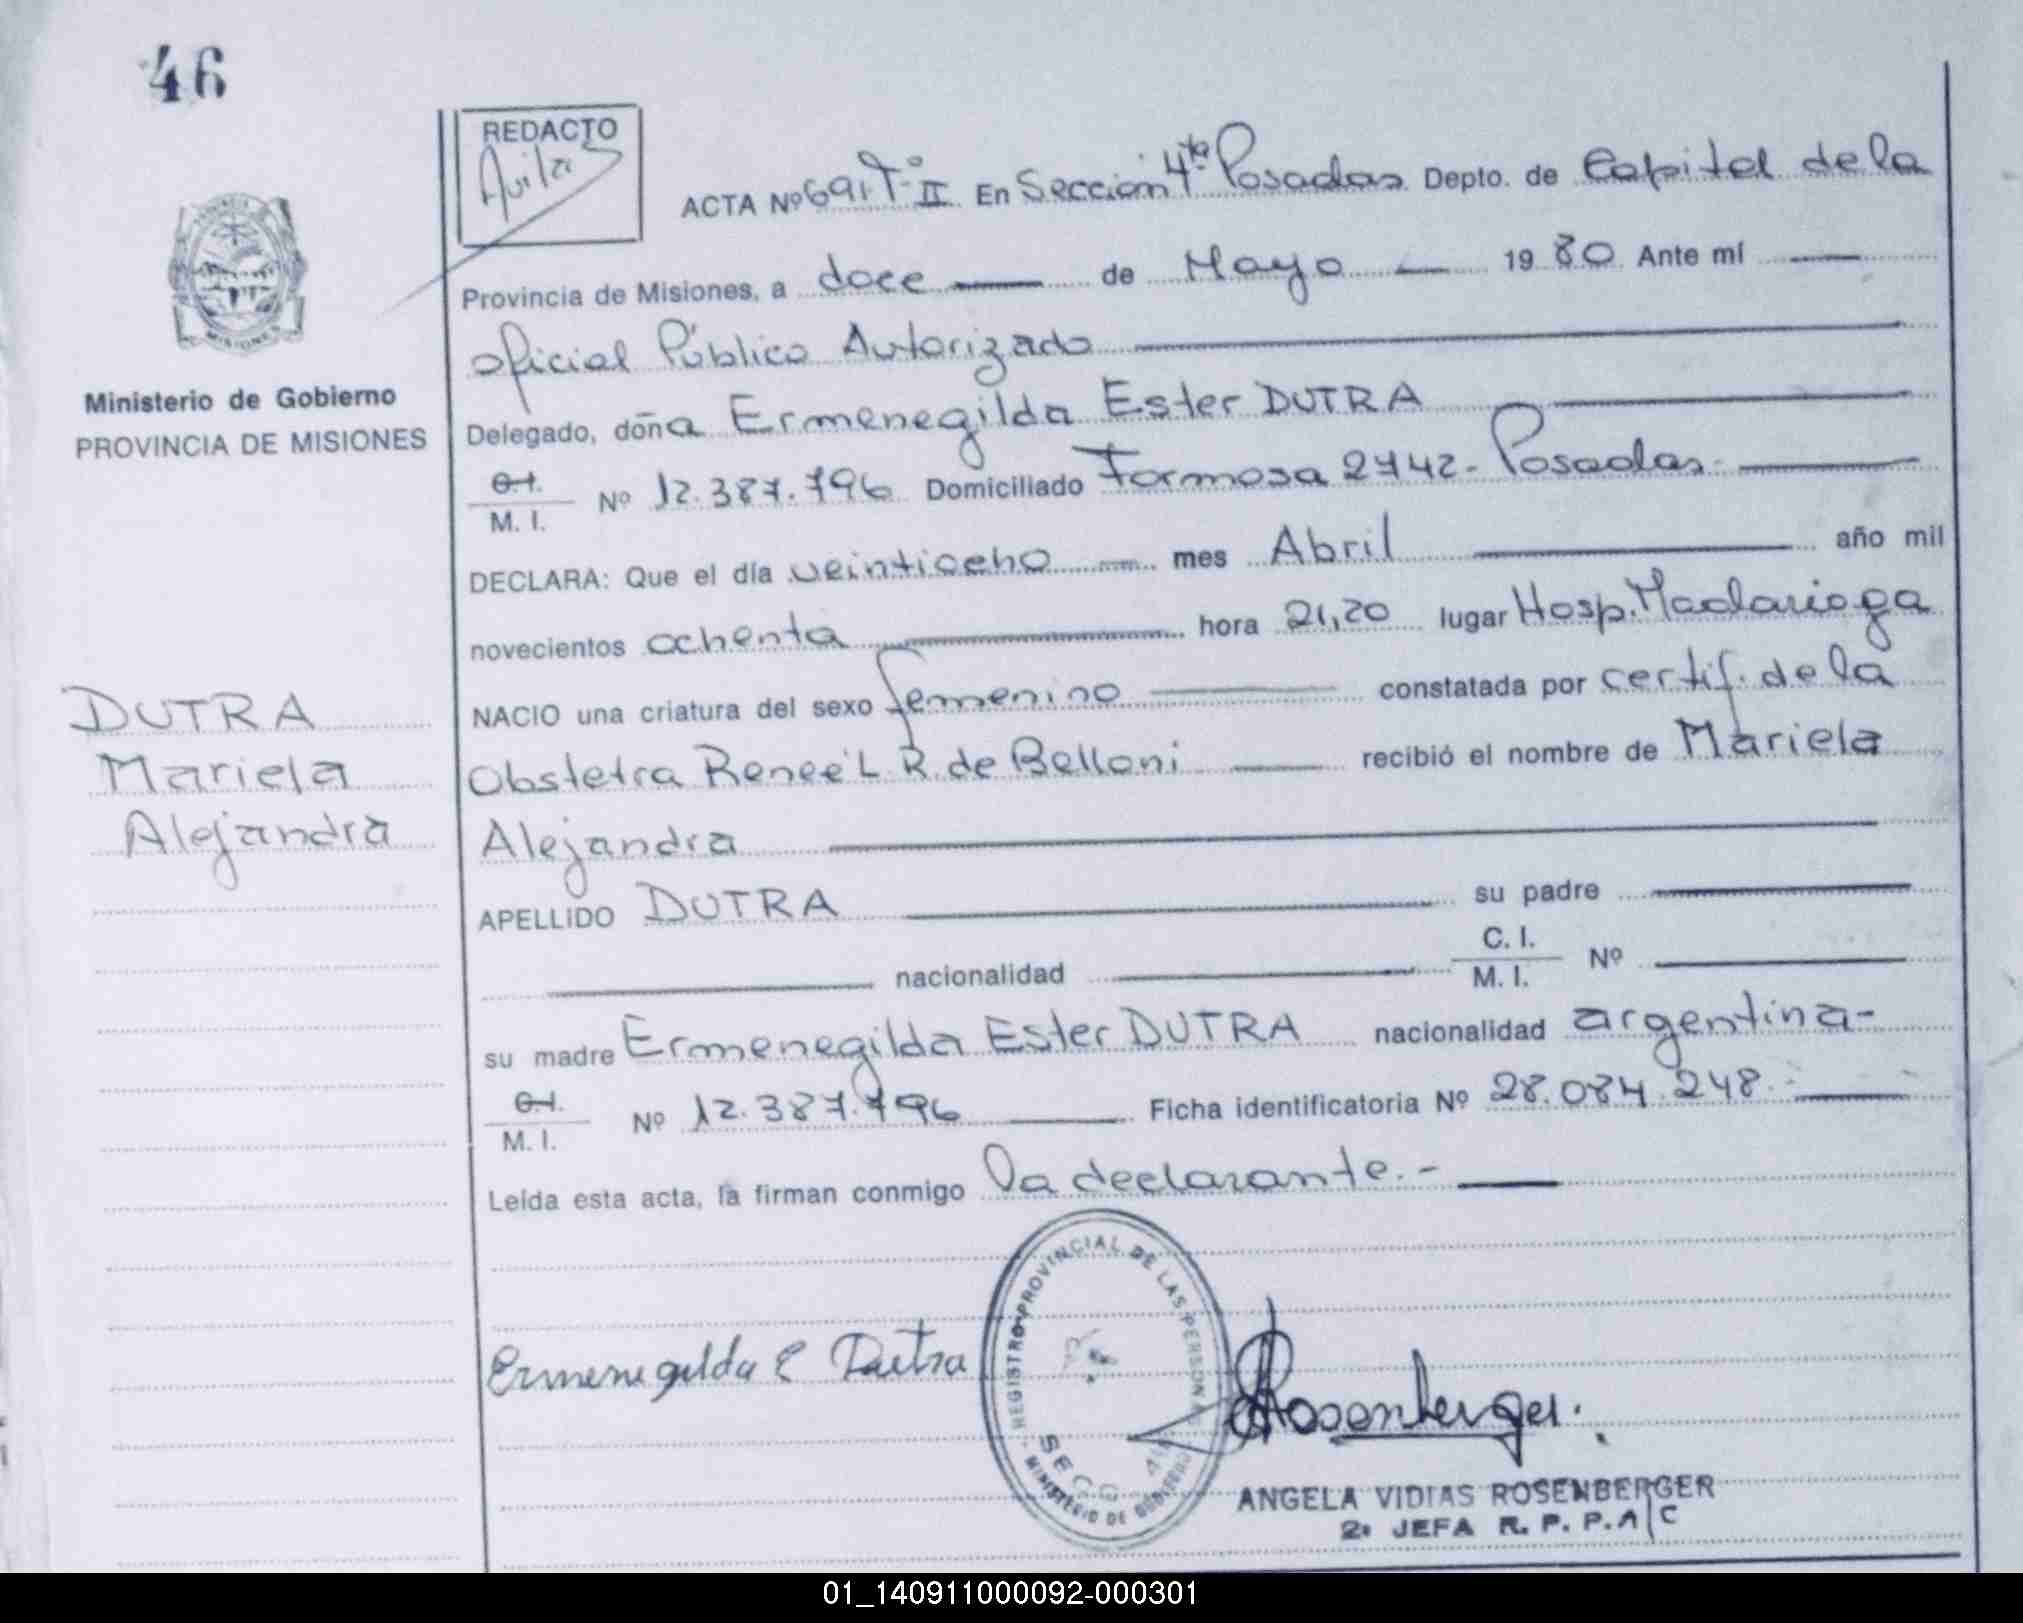 46
REDACTO
Avila
ACTA Nº 691 Tº II En Sección 4ta Posadas Depto. de Capital de la
Provincia de Misiones, a doce de Mayo 1980 Ante mí
oficial Público Autorizado
Delegado, doña Ermenegilda Ester DUTRA
C.I.
M. I. Nº 12.387.796 Domiciliado Formosa 2742- Posadas-
DECLARA: Que el día veintiocho mes Abril año mil
novecientos ochenta hora 21,20 lugar Hosp. Madariaga
NACIO una criatura del sexo femenino constatada por certif. de la
Obstetra Renee L R. de Belloni recibió el nombre de Mariela
Alejandra
APELLIDO DUTRA su padre
nacionalidad C. I.
M. I. Nº
su madre Ermenegilda Ester DUTRA nacionalidad argentina-
C.I.
M. I. Nº 12.387.796 Ficha identificatoria Nº 28.084.248.-
Leída esta acta, la firman conmigo la declarante.-
Ministerio de Gobierno
PROVINCIA DE MISIONES
DUTRA
Mariela
Alejandra
MISIONES
Ermenegilda E Dutra
REGISTRO PROVINCIAL DE LAS PERSONAS
MINISTERIO DE GOBIERNO
Rosenberger.
ANGELA VIDIAS ROSENBERGER
2ª JEFA R. P. P. A/C
01_140911000092-000301